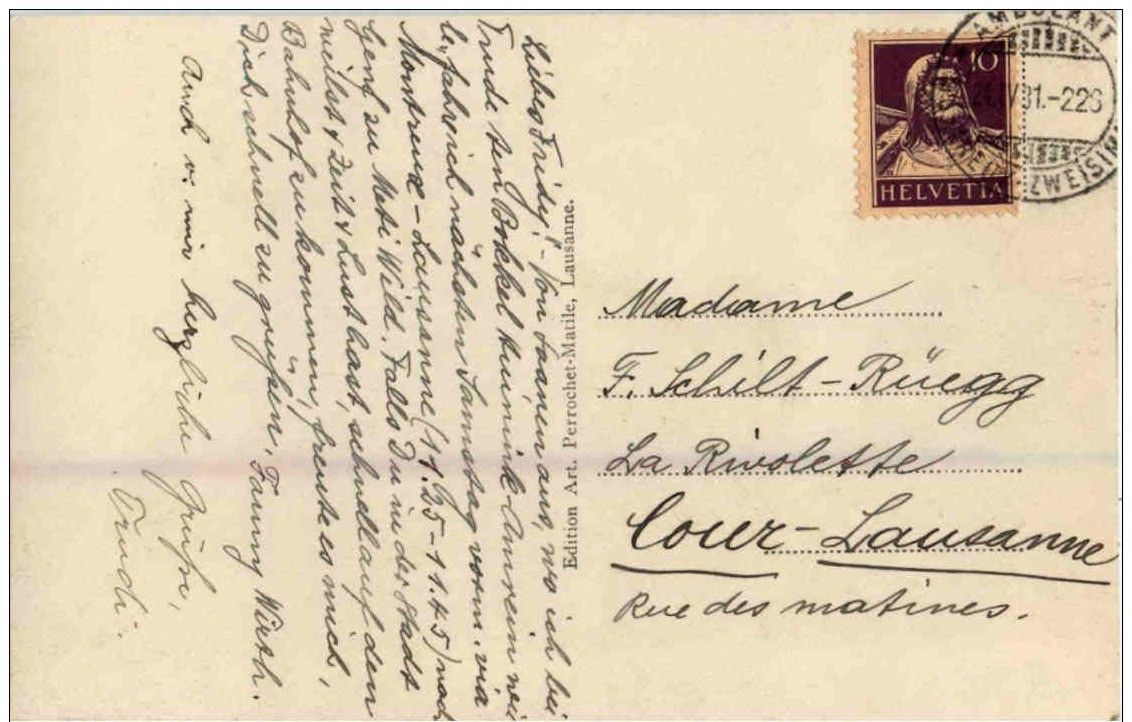 Liebes Fridy! - Von Saanen aus, wo ich bei
Trude ten Bokkel Huinink-Amrein wei
le, fahre ich nächsten Samstag vorm. via
Montreux-Lausanne (11.25-11.45) nach
Genf zu Meti Wild. Falls Du in der Stadt
weilst & Zeit & Lust hast, schnell auf den
Bahnhof zu kommen, freute es mich,
Dich schnell zu grüßen. Fanny Wirth.
Auch v. mir herzliche Grüße,
Trudi.
Edition Art. Perrochet-Matile, Lausanne.
10
HELVETIA
AMBULANT
IV 31.-226
ZWEISIM
Madame
F. Schilt-Rüegg
La Rivolette
Cour-Lausanne
Rue des matines.